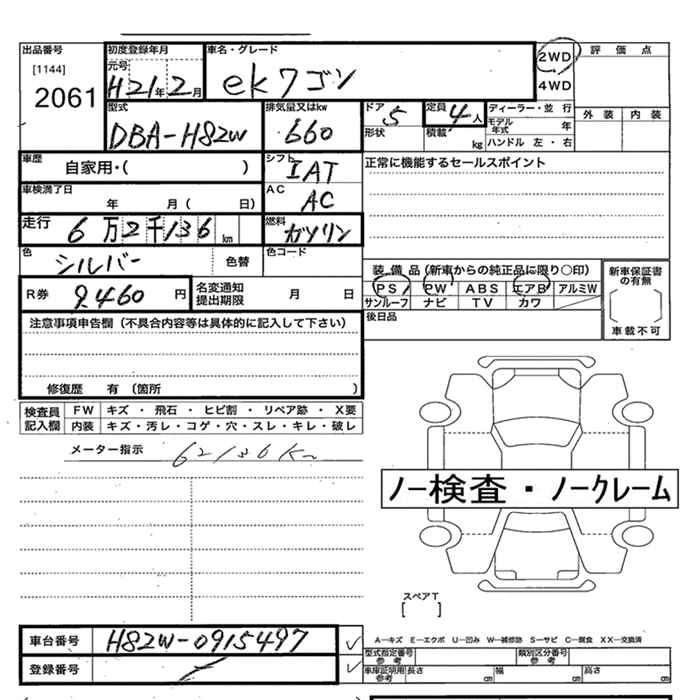 出品番号 初度登録年月 車名・グレード 2WD 評価点
[1144] 元号 ekワゴン 4WD
2061 H21年2月 外装 内装
型式 排気量又はkw ドア 5 定員 4人 ディーラー・並行
DBA-H82W 660 形状 積載 kg モデル年式 年
ハンドル 左・右
車歴 自家用・( ) シフト IAT 正常に機能するセールスポイント
車検満了日 年 月( 日) AC AC
走行 6万2千136km 燃料 ガソリン
色 シルバー 色替 色コード
装備品(新車からの純正品に限り○印) 新車保証書の有無
R券 9,460円 名変通知提出期限 月 日 PS PW ABS エアB アルミW
サンルーフ ナビ TV カワ 車載不可
注意事項申告欄(不具合内容等は具体的に記入して下さい) 後日品
修復歴 有(箇所 )
検査員記入欄 FW キズ・飛石・ヒビ割・リペア跡・X要
内装 キズ・汚レ・コゲ・穴・スレ・キレ・破レ
メーター指示 62136Km
ノー検査・ノークレーム
スペアT
[ ]
車台番号 H82W-0915497 A―キズ E―エクボ U―凹み W―補修跡 S―サビ C―腐食 XX―交換済
登録番号 型式指定番号 参考 類別区分番号 参考
車庫証明用 参考 長さ cm 幅 cm 高さ cm